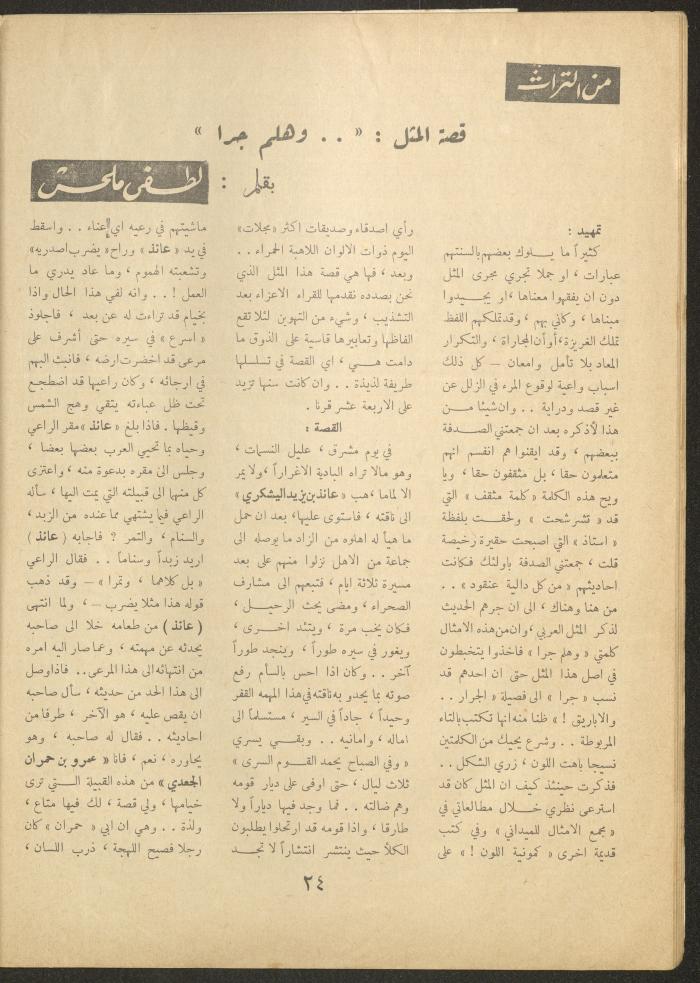 من التراث
قصة المثل : « . . وهلم جرا »
بقلم : لطفي ملحس
تمهيد :
كثيراً ما يلوك بعضهم بالسنتهم
عبارات ، او جملا تجري مجرى المثل
دون ان يفقهوا معناها ، او يجيدوا
مبناها ، وكاني بهم ، وقد تملكهم اللفظ
تملك الغريزة، أو أن المجاراة ، والتكرار
المعاد بلا تأمل وامعان – كل ذلك
اسباب واعية لوقوع المرء في الزلل عن
غير قصد ودراية . . وان شيئا من
هذا لأذكره بعد ان جمعتني الصدفة
ببعضهم ، وقد ايقنوا هم انفسهم انهم
متعلمون حقا ، بل مثقفون حقا ، ويا
ويح هذه الكلمة « كلمة مثقف » التي
قد « تشرشحت » ولحقت بلفظة
« استاذ » التي اصبحت حقيرة رخيصة
قلت ، جمعتني الصدفة باولئك فكانت
احاديثهم « من كل دالية عنقود » . .
من هنا وهناك ، الى ان جرهم الحديث
لذكر المثل العربي ، وان من هذه الامثال
كلمتي « وهلم جرا » فاخذوا يتخبطون
في اصل هذا المثل حتى ان احدهم قد
نسب « جرا » الى فصيلة « الجرار . .
والاباريق ! » ظنا منه انها تكتب بالتاء
المربوطة . . وشرع يحيك من الكلمتين
نسيجا باهت اللون ، زري الشكل . .
فذكرت حينئذ كيف ان المثل كان قد
استرعى نظري خلال مطالعاتي في
« مجمع الامثال للميداني » وفي كتب
قديمة اخرى « كمونية اللون ! » على
رأي اصدقاء وصديقات اكثر « مجلات»
اليوم ذوات الالوان اللاهبة الحمراء . .
وبعد ، فها هي قصة هذا المثل الذي
نحن بصدده نقدمها للقراء الاعزاء بعد
التشذيب ، وشيء من التهوين لئلا تقع
الفاظها وتعابيرها قاسية على الذوق ما
دامت هي ، اي القصة في تسلسلها
طريفة لذيذة . . وان كانت سنها تزيد
على الاربعة عشر قرنا .
القصة :
في يوم مشرق ، عليل النسمات ،
وهو مالا تراه البادية الا غراراً ، ولا يمر
الا لماما ، هب « عائذ بن يزيد اليشكري »
الى ناقته ، فاستوى عليها ، بعد ان حمل
ما هيأ له اهلوه من الزاد ما يوصله الى
جماعة من الاهل نزلوا منهم على بعد
مسيرة ثلاثة ايام ، فتبعهم الى مشارف
الصحراء ، ومضى يحث الرحيل ،
فكان يخب مرة ، ويتئد اخرى ،
ويغور في سيره طوراً ، وينجد طوراً
آخر . . وكان اذا احس بالسأم رفع
صوته بما يحدو به ناقته في هذا المهمه القفر
وحيداً ، جاداً في السير ، مستسلماً الى
اماله ، وامانيه . . وبقي يسري
« وفي الصباح يحمد القوم السرى »
ثلاث ليال ، حتى اوفى على ديار قومه
وهم ضالته . . فما وجد فيها دياراً ولا
طارقا ، واذا قومه قد ارتحلوا يطلبون
الكلأ حيث ينتشر انتشاراً لا تجد
ماشيتهم في رعيه اي عناء . . واسقط
في يد « عائذ » وراح « يضرب اصدريه »
وتشعبته الهموم ، وما عاد يدري ما
العمل ! . . وانه لفي هذا الحال واذا
بخيام قد تراءت له عن بعد ، فاجلوذ
« اسرع » في سيره حتى أشرف على
مرعى قد اخضرت ارضه ، فانبث البهم
في ارجائه ، وكان راعيها قد اضطجع
تحت ظل عباءته يتقي وهج الشمس
وقيظها . فاذا بلغ « عائذ » مقر الراعي
وحياه بما تحيي العرب بعضها بعضا ،
وجلس الى مقره بدعوة منه ، واعتزى
كل منهما الى قبيلته التي يمت اليها ، سأله
الراعي فيما يشتهي مما عنده من الزبد ،
والسنام ، والتمر ? فاجابه ( عائذ )
اريد زبداً وسناماً . . فقال الراعي
« بل كلاهما ، وتمرا » – وقد ذهب
قوله هذا مثلا يضرب – ، ولما انتهى
( عائذ ) من طعامه خلا الى صاحبه
يحدثه عن مهمته ، وعما صار اليه امره
من انتهائه الى هذا المرعى . . فاذا وصل
الى هذا الحد من حديثه ، سأل صاحبه
ان يقص عليه ، هو الآخر ، طرفا من
احاديثه . . فقال له صاحبه ، وهو
يحاوره ، نعم ، فانا « عمرو بن حمران
الجعدي » من هذه القبيلة التي ترى
خيامها ، ولي قصة ، لك فيها متاع ،
ولذة . . وهي ان ابي « حمران » كان
رجلا فصيح اللهجة ، ذرب اللسان ،
٢٤